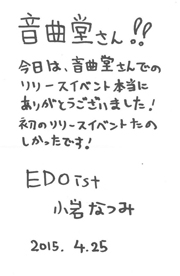 音曲堂さん!!
今日は、音曲堂さんでの
リリースイベント本当に
ありがとうございました!
初のリリースイベントたの
しかったです!
EDOist
小岩なつみ
2015. 4.25